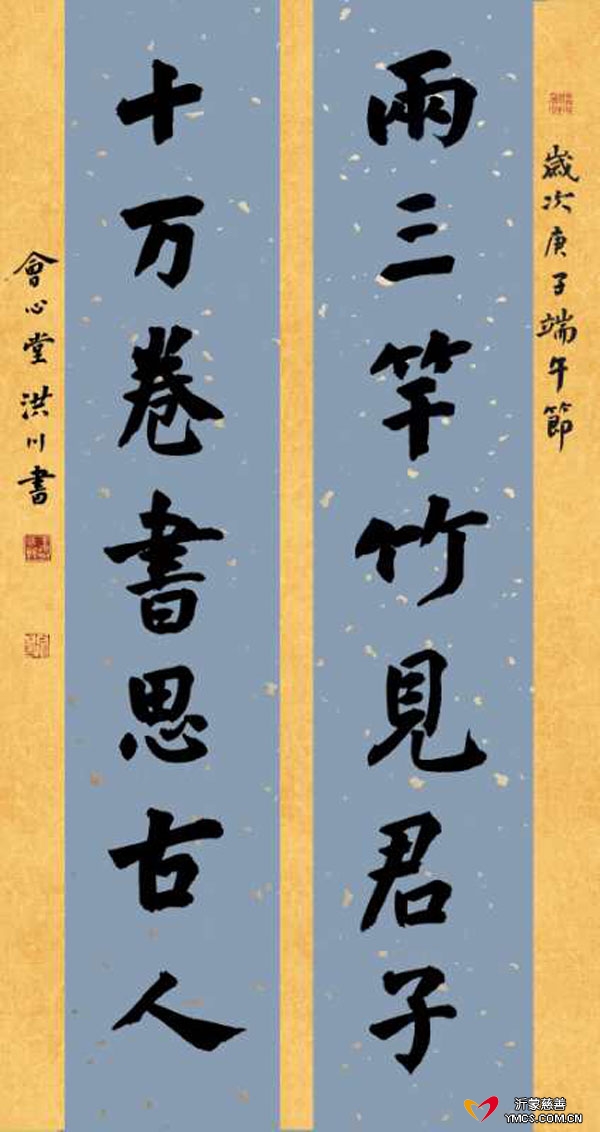 歲次庚子端午節
兩三竿竹見君子
十万卷書思古人
會心堂洪川書
沂蒙慈善
YMCS.COM.CN